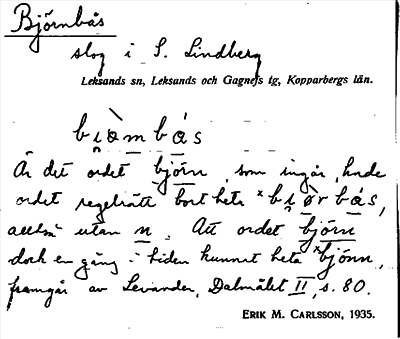 Björnbås
skog i S. Lindberg
Leksands sn, Leksands och Gagnefs tg, Kopparbergs län.
bi̯ò̀mbá́s
Är det ordet björn, som ingår, hade
ordet regelrätt bort heta ˣbi̯ø̀rbá́s,
alltså utan n. Att ordet björn
dock en gång i tiden kunnat heta ˣbjönn,
framgår av Levander, Dalmålet II, s. 80.
ERIK M. CARLSSON, 1935.